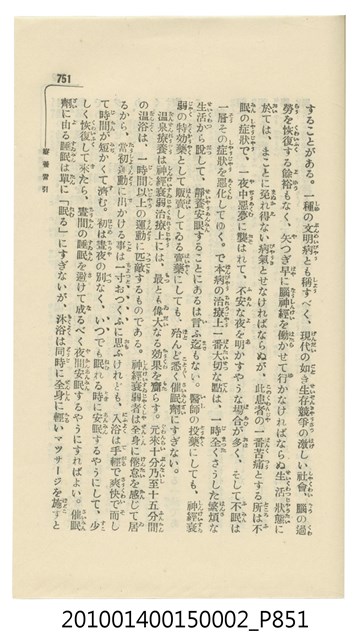 することがある。一種の文明病とも稱すべく、現代の如き生存競爭の激しい社會、腦の過
勞を恢復する餘裕もなく、矢つぎ早に腦神經を働かせて行かなければならぬ生活狀態に
於ては、まことに免れ得ない病氣とせなければならぬが、此患者の一番苦痛とする所は不
眠の症狀で、一夜中惡夢に襲はれて、不安な夜を明かすやうな場合が多く、そして不眠は
一層その症狀を惡化してゆく。で本病の治療上一番大切な點は、一時全くさうした繁煩な
生活から脫して、靜養安眠することにあるは言ふ迄もない。醫師の投藥にしても、神經衰
弱の特効藥として販賣してゐる賣藥にしても、殆んど悉く催眠劑にすぎない。
溫泉療養は神經衰弱治療上には、最とも偉大なる効果を齎らす。元來十分乃至十五分間
の溫浴は、一時間以上の運動に匹敵するものである。神經衰弱者は全身に倦怠を感じて居
るから、當初運動に出かける事は一寸おつくふに思ふけれども、入浴は手輕で爽快で而し
て時間が短かくて濟む。初は晝夜の別なく、いつでも眠れる時に安眠するやうにして、少
しく恢復して來たら、晝間の睡眠を避けて成るべく夜間安眠するやうにすればよい。催眠
劑に由る睡眠は單に「眠る」にすぎないが、沐浴は同時に全身に輕いマツサージを施すと
751
容養索引
201001400150002_P851